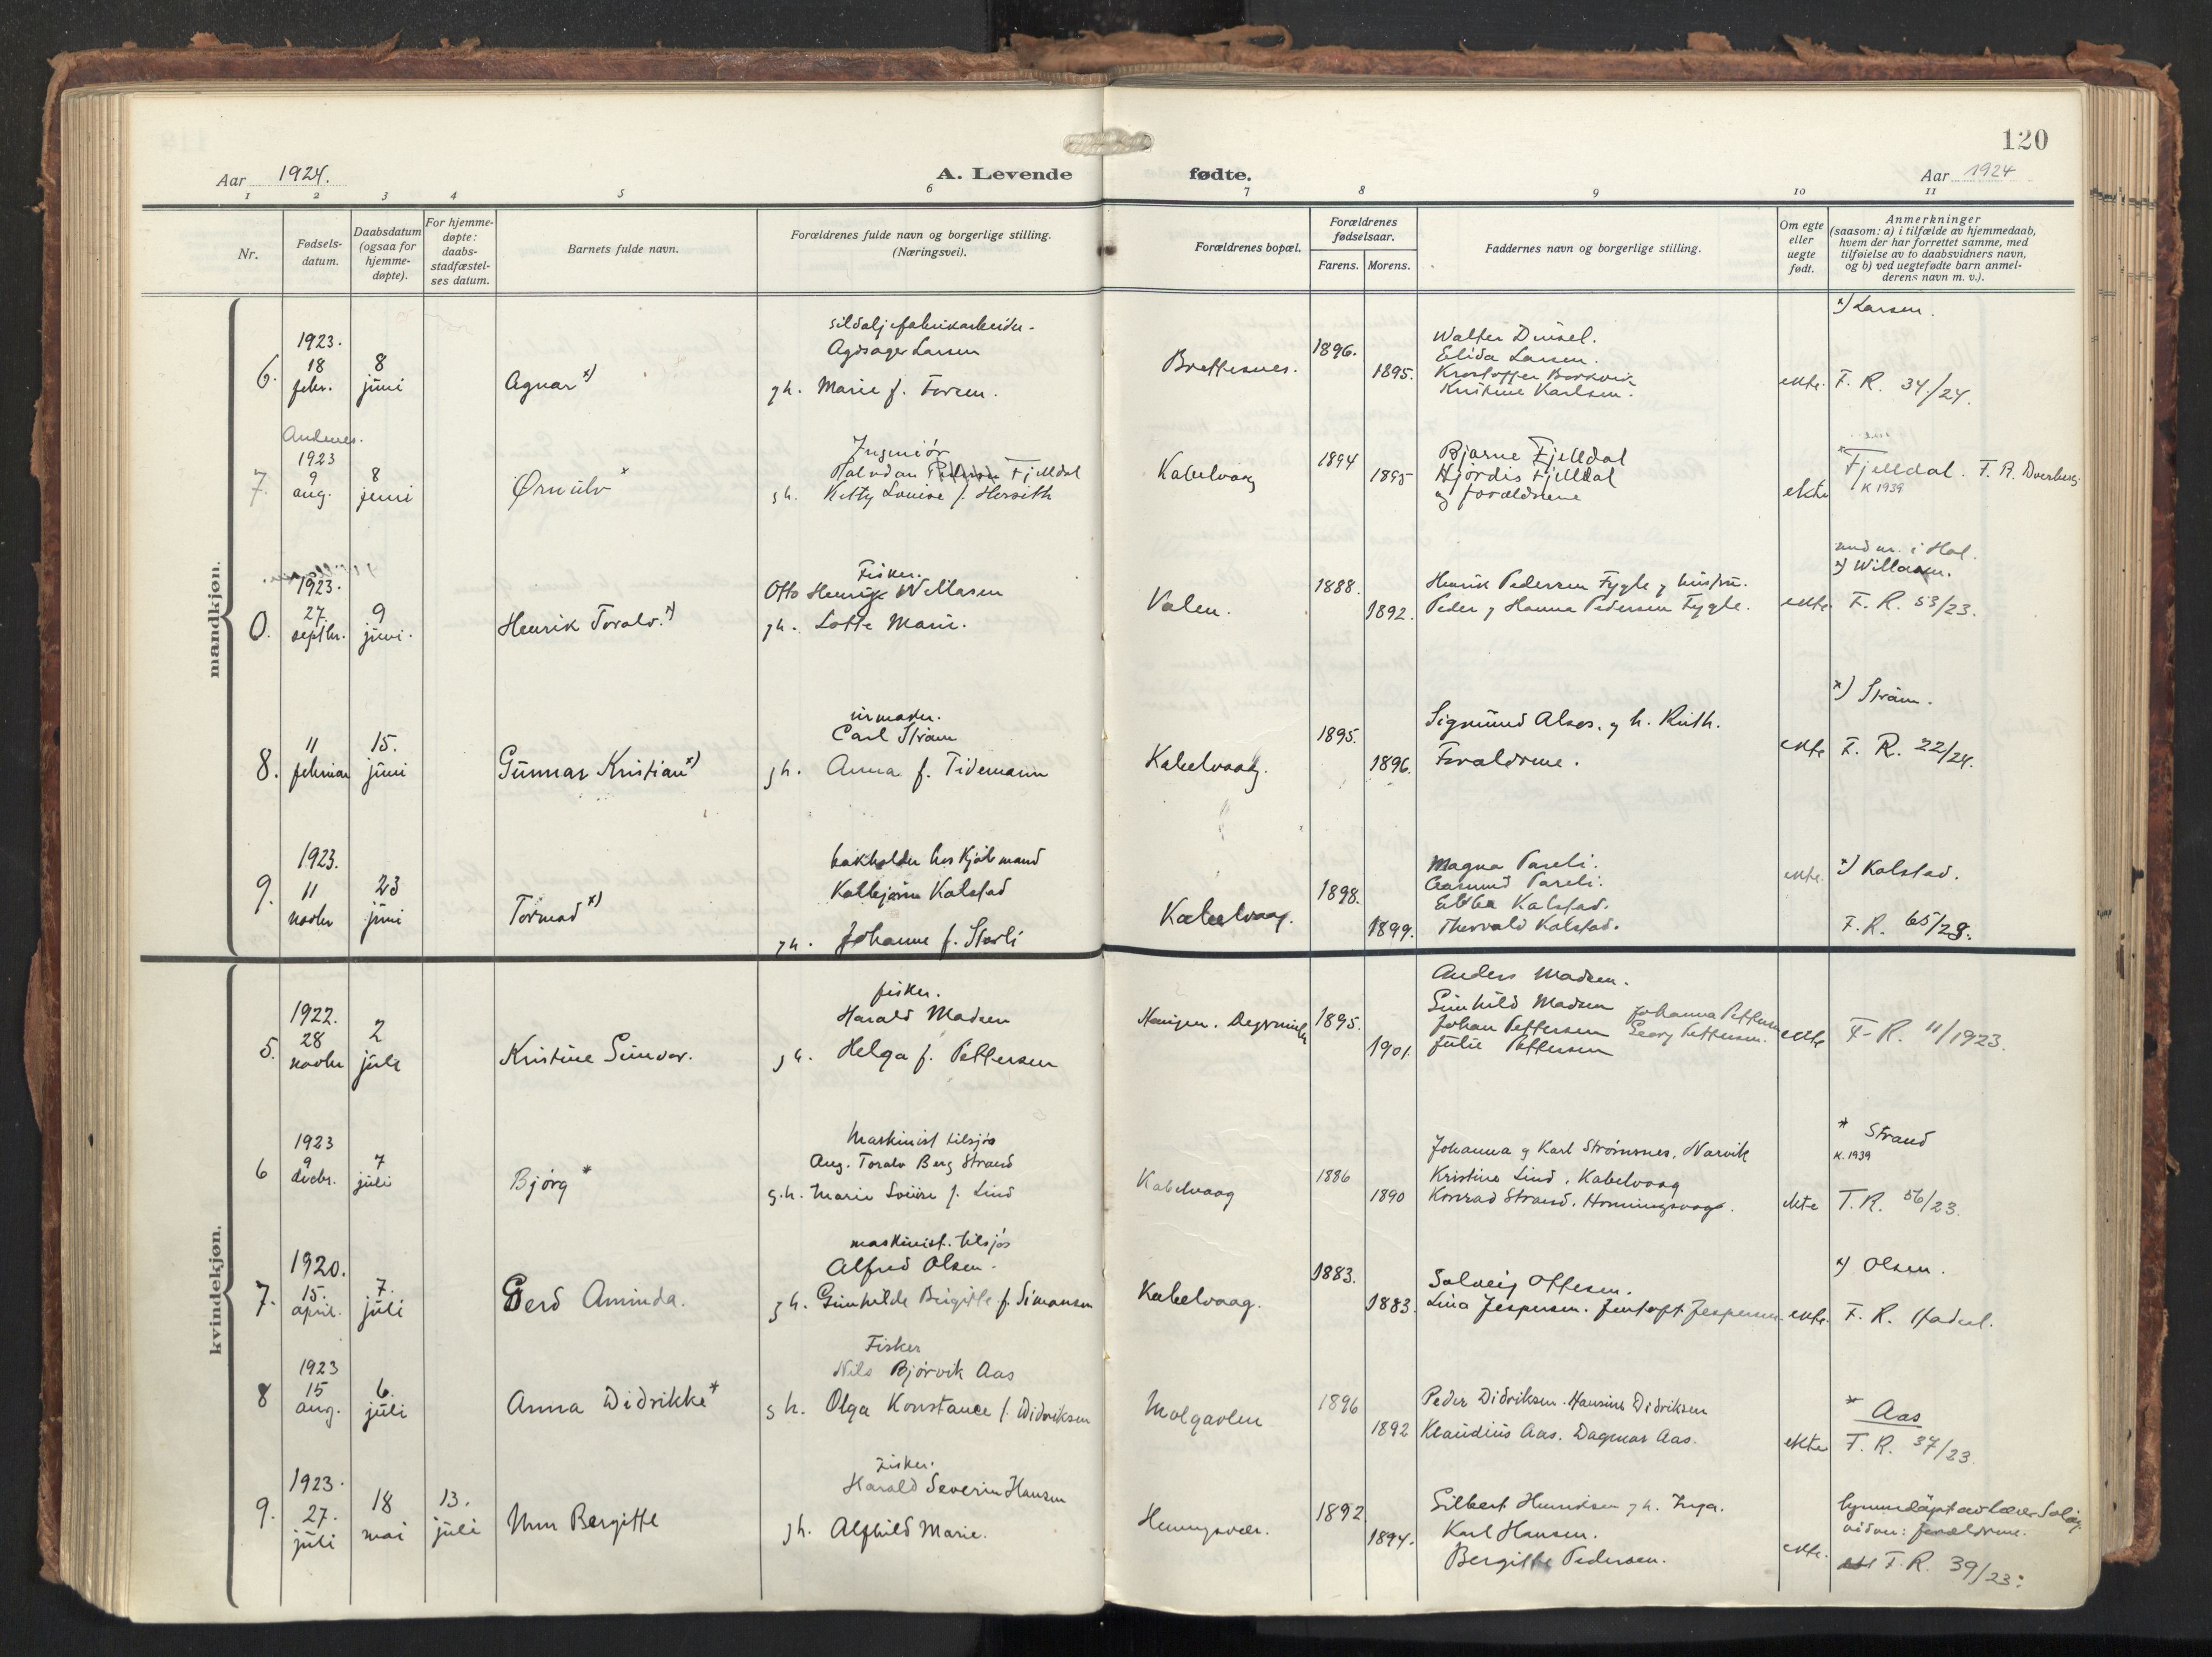 120
Aar 1924.
A. Levende
fødte.
Aar 1924
1 2 3 4 5 6 7 8 9 10 11
Nr.
Fødsels-
datum.
Daabsdatum
(ogsaa for
hjemme-
døpte).
For hjemme-
døpte:
daabs-
stadfæstel-
ses datum.
Barnets fulde navn.
Forældrenes fulde navn og borgerlige stilling.
(Næringsvei).
Forældrenes bopæl.
Forældrenes
fødselsaar.
Farens. Morens.
Faddernes navn og borgerlige stilling.
Om egte
eller
uegte
født.
Anmerkninger
(saasom: a) i tilfælde av hjemmedaab,
hvem der har forrettet samme, med
tilføielse av to daabsvidners navn,
og b) ved uegtefødte barn anmel-
derens navn m. v.).
mandkjøn.
6.
1923.
18
febr.
8
juni
Agnar x)
Larsen
gh. Marie f.
Brettesnes.
1896.
1895.
Walter
Elida Larsen.
Kristine Karlsen.
ekte.
x) Larsen.
F. R. 34/24.
7.
Andenes.
1923
9
aug.
8
juni
Ørnulv x
Ingeniør
Fjelldal
gh. Ketty Louise f.
Kabelvaag
1894
1895
Bjarne Fjelldal
Hjørdis Fjelldal
og forældrene
ekte
*
Fjelldal. F. R. Dverberg.
K 1939
0.
1923.
27.
septbr.
9
juni.
Henrik Toralv. x)
Fisker.
Otto Henrik Willasen
gh. Lotte Marie.
Valen.
1888.
1892.
Henrik Pedersen Fygle g hustru.
Peder g Hanna Pedersen Fygle.
ekte
i Hol.
x) Willasen.
F. R. 53/23.
8.
11
februar
15.
juni
Gunnar Kristian x)
urmaker.
Carl Strøm
gh. Anna f. Tidemann
Kabelvaag.
1895.
1896.
Sigmund Alsos. g h. Ruth.
Forældrene.
ekte
x) Strøm.
F. R. 22/24.
9.
1923.
11
novbr
23
juni
Tormod x)
bokholder hos Kjøbmand
Kolbjørn Kolstad
gh. Johanne f. Storli
Kabelvaag.
1898.
1899.
Magna Pareli.
Aasmund Pareli.
Ebba Kalstad.
Thorvald Kalstad.
ekte.
x) Kalstad.
F. R. 65/23.
kvindekjøn.
5.
1922.
28
novbr
2
juli
Kristine Gunvor.
fisker.
Harald Madsen
gh. Helga f. Pettersen
1895.
1901.
Anders Madsen.
Gunhild Madsen Johanna Pettersen
Johan Pettersen Georg Pettersen.
Julie Pettersen
ekte
F. R. 11/1923.
6
1923
9
decbr.
7
juli
Bjørg *
Maskinist tilsjøs
Aug. Toralv Berg Strand
g.h. Marie Lovise f. Lind
Kabelvaag
1886
1890
Johanna g Karl Strømsnes, Narvik
Kristine Lind, Kabelvaag
Konrad Strand, Honningsvaag.
ekte
* Strand
K. 1939
F. R. 56/23.
7.
1920.
15.
april.
7.
juli
Gerd Aminda.
maskinist. tilsjøs
Alfred Olsen.
gh. Gunhilde Birgitte f. Simonsen
Kabelvaag.
1883.
1883.
Solveig Ottesen.
Lina Jespersen. Jentoft Jespersen.
ekte.
x) Olsen.
F. R. Hadsel.
8
1923
15
aug.
6.
juli
Anna Didrikke *
Fisker
Nils Bjørvik Aas
gh. Olga Konstance f. Didriksen
Molgavlen
1896
1892
Peder Didriksen. Hansine Didriksen
Klaudius Aas. Dagmar Aas.
ekte
* Aas
F. R. 37/23.
9.
1923.
27.
juli
18
mai
13.
juli
Unn Bergitte
Fisker.
Harald Severin Hansen
gh. Alfhild Marie.
Henningsvær.
1892
1894.
Gilbert Henriksen g h. Inga.
Karl Hansen.
Bergitte Pedersen.
ekte.
forældrene.
F. R. 39/23.